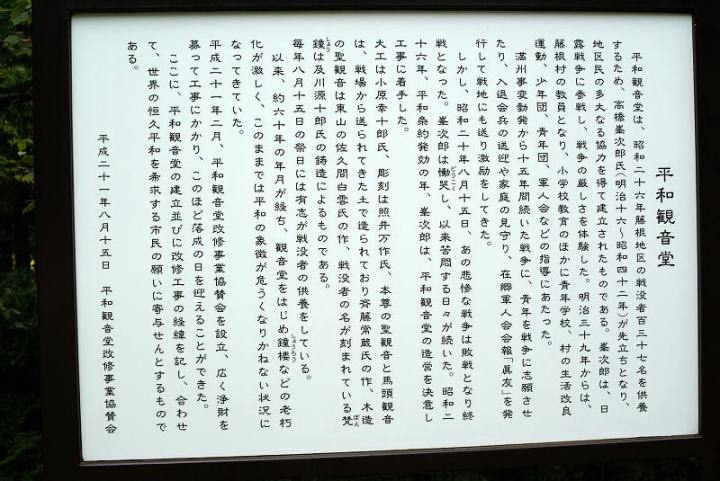 平和観音堂
平和観音堂は、昭和二十六年藤根地区の戦没者百三十七名を供養
するため、高橋峯次郎氏(明治十六～昭和四十二年)が先立ちとなり、
地区民の多大なる協力を得て建立されたものである。峯次郎は、日
露戦争に参戦し、戦争の厳しさを体験した。明治三十九年からは、
藤根村の教員となり、小学校教育のほかに青年学校、村の生活改良
運動、少年団、青年団、軍人会などの指導にあたった。
満州事変勃発から十五年間続いた戦争に、青年を戦争に志願させ
たり、入退会兵の送迎や家庭の見守り、在郷軍人会会報「眞友」を発
行して戦地にも送り激励をしてきた。
しかし、昭和二十年八月十五日、あの悲惨な戦争は敗戦となり終
戦となった。峯次郎は慟哭し、以来苦悶する日々が続いた。昭和二
十六年、平和条約発効の年、峯次郎は、平和観音堂の造営を決意し
工事に着手した。
大工は小原幸十郎氏、彫刻は照井万作氏、本尊の聖観音と馬頭観音
は、戦場から送られてきた土で造られており斉藤常蔵氏の作、木造
の聖観音は東山の佐久間白雲氏の作、戦没者の名が刻まれている梵
鐘は及川源十郎氏の鋳造によるものである。
毎年八月十五日の祭日には有志が戦没者の供養をしている。
以来、約六十年の年月が経ち、観音堂をはじめ鐘楼などの老朽
化が激しく、このままでは平和の象徴が危うくなりかねない状況に
なってきていた。
平成二十一年二月、平和観音堂改修事業協賛会を設立、広く浄財を
募って工事にかかり、このほど落成の日を迎えることができた。
ここに、平和観音堂の建立並びに改修工事の経緯を記し、合わせ
て、世界の恒久平和を希求する市民の願いに寄与せんとするもので
ある。
平成二十一年八月十五日 平和観音堂改修事業協賛会